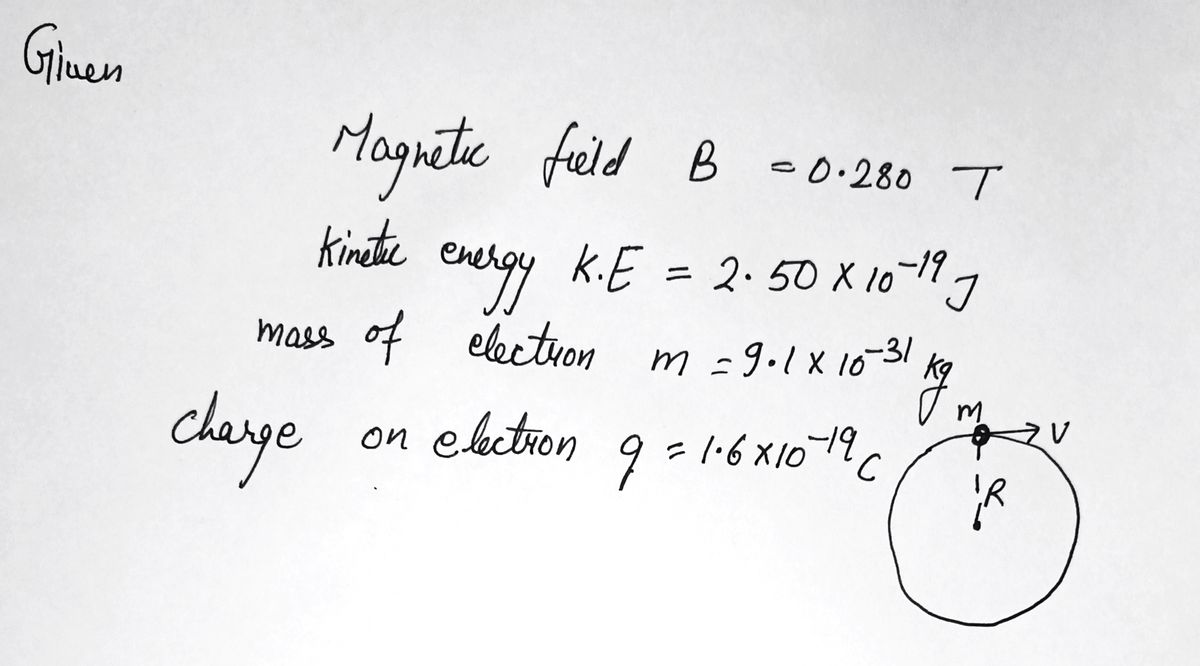 Given
Magnetic field B = 0.280 T
Kinetic energy K.E = 2.50 X 10^-19 J
mass of electron m = 9.1 x 10^-31 kg
charge on electron q = 1.6 x 10^-19 C
m
V
R